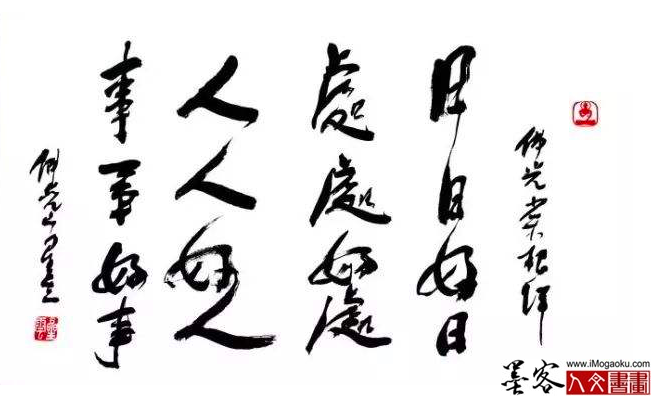 佛光菜根譚
日日好日
處處好處
人人好人
事事好事
佛光山星雲
星雲
www.iMogaoku.com
墨客 人文書畫